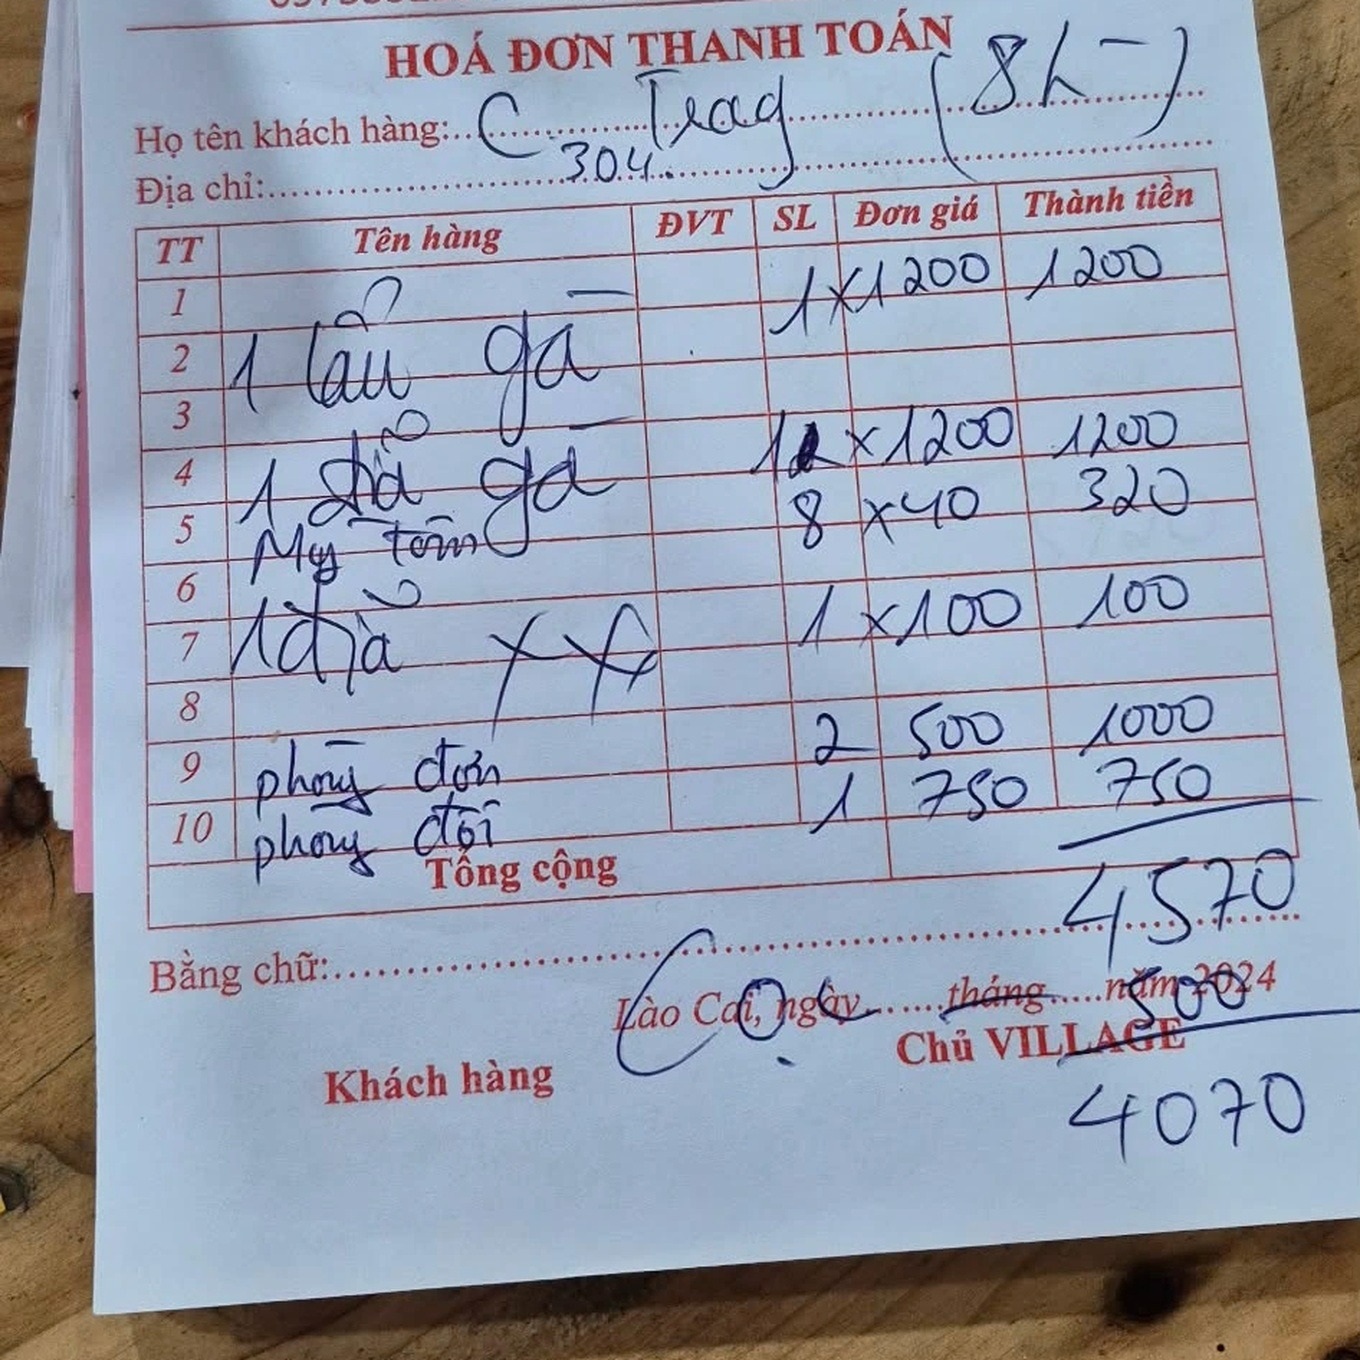 HOÁ ĐƠN THANH TOÁN
Họ tên khách hàng: C Trag (8h-)
Địa chỉ: 304.
TT Tên hàng ĐVT SL Đơn giá Thành tiền
1 1 x 1200 1200
2 1 lẩu gà
3
4 1 đĩa gà 1 x 1200 1200
5 Mỳ tôm 8 x 40 320
6
7 1 đĩa xx 1 x 100 100
8
9 phòng đơn 2 500 1000
10 phòng đôi 1 750 750
Tổng cộng 4570
Bằng chữ:
Lào Cai, ngày tháng năm 2024
Cọc 500
Khách hàng Chủ VILLAGE
4070